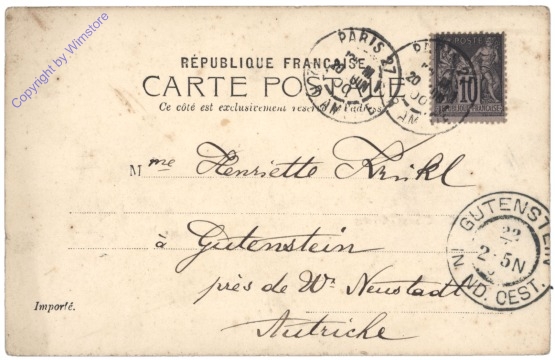 Copyright by Wimstore
RÉPUBLIQUE FRANÇAISE
CARTE POSTALE
Ce côté est exclusivement réservé à l'adresse
PARIS 27
20
POSTES
10
RÉPUBLIQUE FRANÇAISE
Mme Henriette Krükl
à Gutenstein
près de Wr. Neustadt
Autriche
Importé.
GUTENSTEIN
22
2·5N
IN ND. OEST.